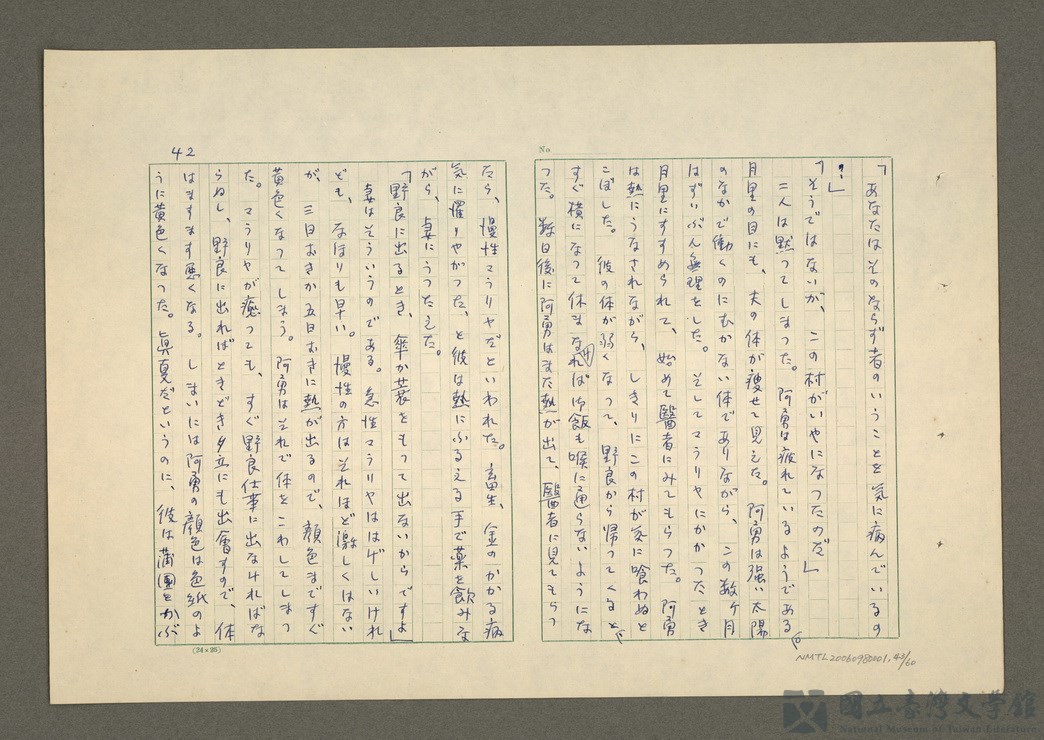 No
「あなたはそのならず者のいうことを気に病んでいるの
!」
「そうではないが、この村がいやになつたのだ」
二人は黙つてしまつた。阿勇は疲れているようである。
月里の目にも、夫の体が痩せて見えた。阿勇は強い太陽
のなかで働くのにむかない体でありながら、この数ヶ月
はずいぶん無理をした。そしてマラリヤにかかつたとき
月里にすすめられて、始めて醫者にみてもらつた。阿勇
は熱にうなされながら、しきりにこの村が気に喰わぬと
こぼした。彼の体が弱くなつて、野良から帰つてくると、
すぐ横になつて休まなければ御飯も喉に通らないようにな
つた。数日後に阿勇はまた熱が出て、醫者に見てもらつ
42
たら、慢性マラリヤだといわれた。畜生、金のかかる病
気に罹りやがつた、と彼は熱にふるえる手で薬を飲みな
がら、妻にうつたえた。
「野良に出るとき、傘か蓑をもつて出ないからですよ」
妻はそういうのである。急性マラリヤははげしいけれ
ども、なほりも早い。慢性の方はそれほど激しくはない
が、三日おきか五日おきに熱が出るので、顔色まですぐ
黄色くなつてしまう。阿勇はそれで体をこわしてしまつ
た。マラリヤが癒つても、すぐ野良仕事に出なければな
らぬし、野良に出ればときどき夕立にも出會すので、体
はますます悪くなる。しまいには阿勇の顔色は色紙のよ
うに黄色くなつた。眞夏だというのに、彼は蒲團をかぶ
(24×25)
NMTL20060980001,43/60
國立臺灣文學館
National Museum of Taiwan Literature